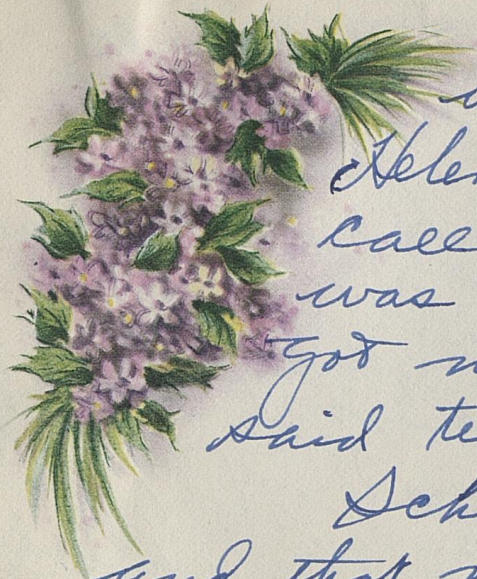 Helen
call
was
got
said te
Sch
and that